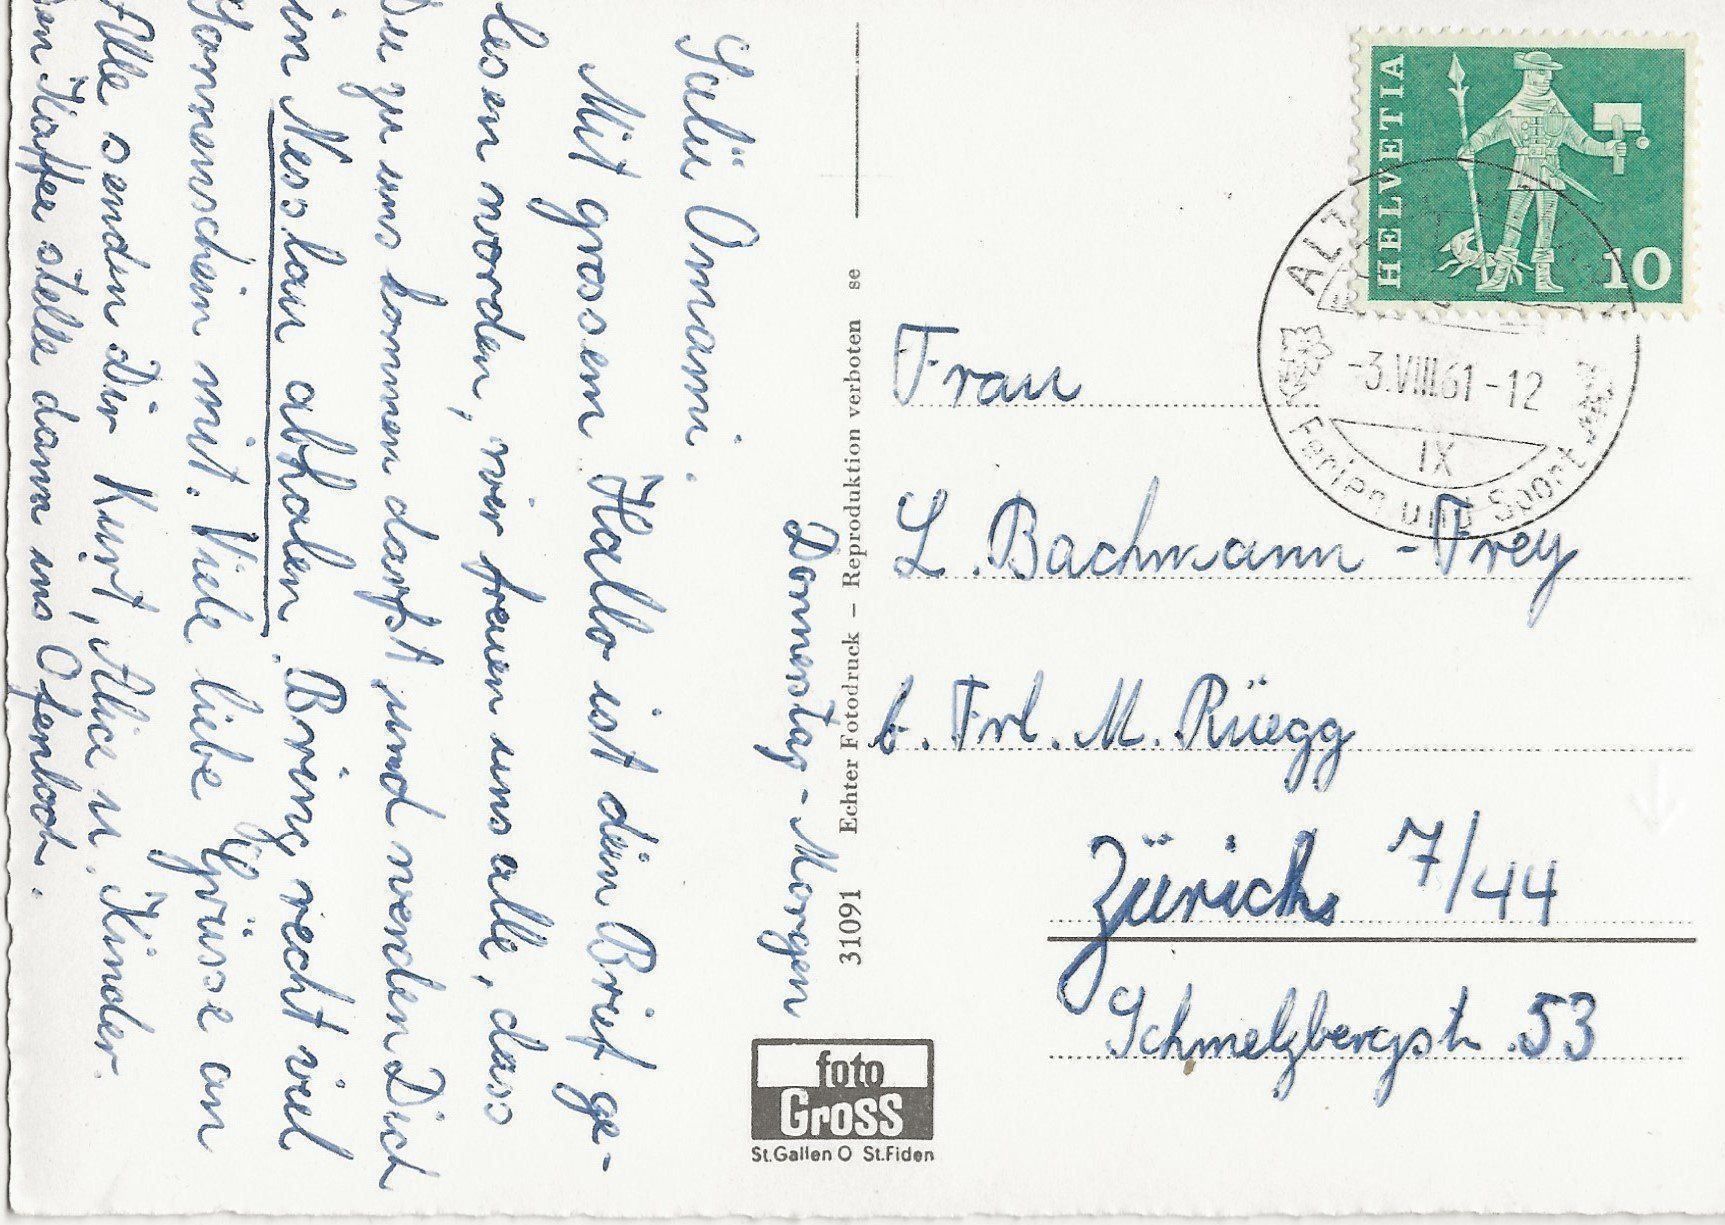 Donnerstag-Morgen
Salü Omami.
Mit grossem Hallo ist dein Brief ge-
lesen worden, wir freuen uns alle, dass
Du zu uns kommen darfst und werden Dich
in Nesslau abholen. Bring recht viel
Sonnenschein mit. Viele liebe Grüsse an
Alle senden Dir Kurt, Alice u. Kinder.
Den Kafee stelle dann ins Ofenloch.
31091 Echter Fotodruck – Reproduktion verboten se
foto
Gross
St.Gallen O St.Fiden
HELVETIA
10
ALT
-3.VIII.61-12
IX
Ferien und Sport
Frau
L. Bachmann-Frey
b. Frl. M. Rüegg
Zürich 7/44
Schmelzbergstr. 53